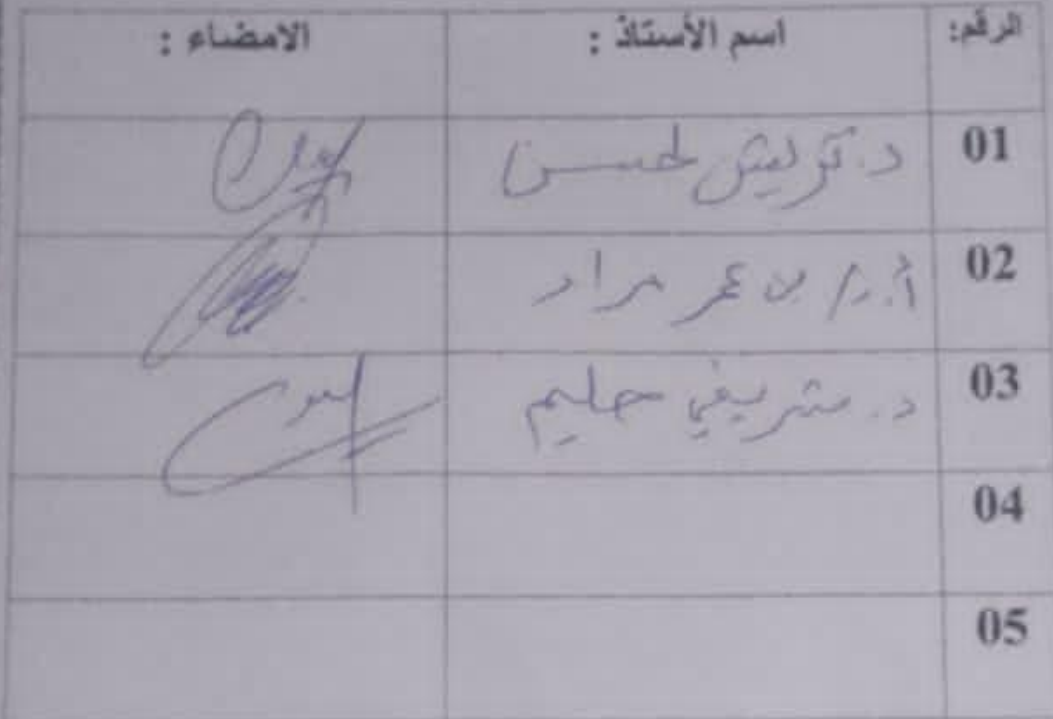 الرقم: اسم الأستاذ : الامضاء :
01 د. كريش لحسن
02 أ.د/ بن عمر مراد
03 د. شريفي حليم
04
05